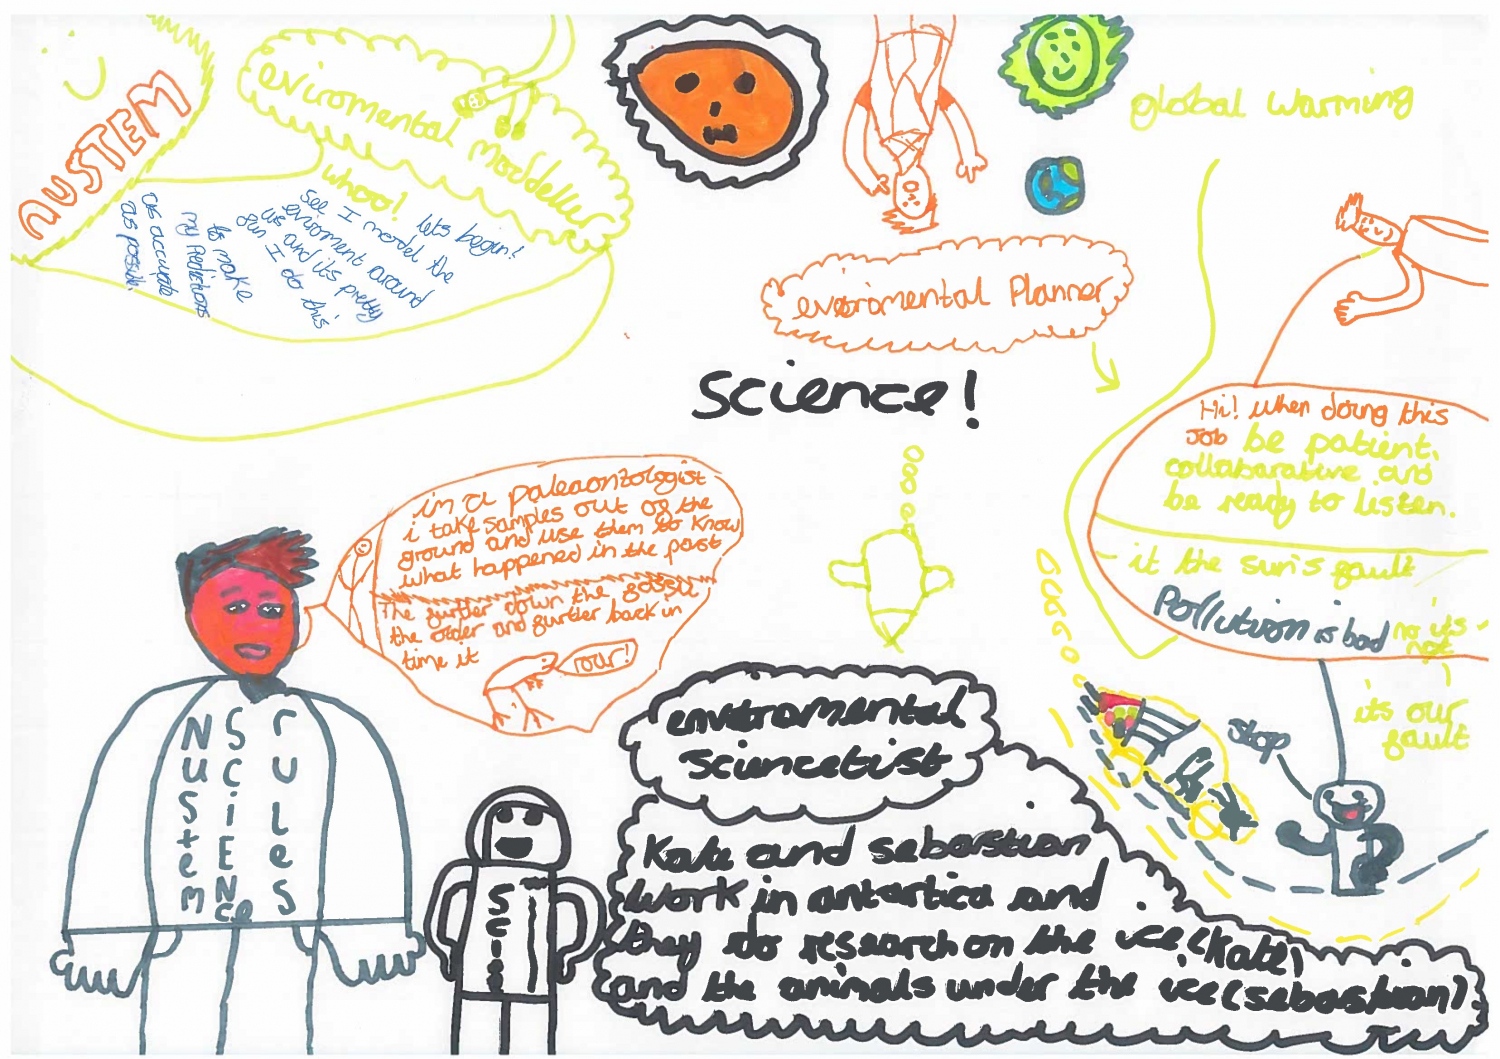 NUSTEM
eviromental modeller
whoo!
lets begin!
see I model the
eviroment around
us and its pretty
fun I do this
to make
my Predictions
as accurate
as possible.
global warming
eviromental Planner
Science!
Hi! when doing this
Job be patient,
collabarative and
be ready to listen.
it the sun's fault
Pollution is bad
no its
not
its our
fault
stop
in a palaeontologist
i take samples out of the
ground and use them to know
what happened in the past
The further down the fossil
the older and further back in
time it
roar!
Nustem
SCiENce
rules
Scie
enviromental
Sciencetist
Kate and sebarstian
work in antartica and
they do research on the ice (Kate)
and the animals under the ice (sebarstian)